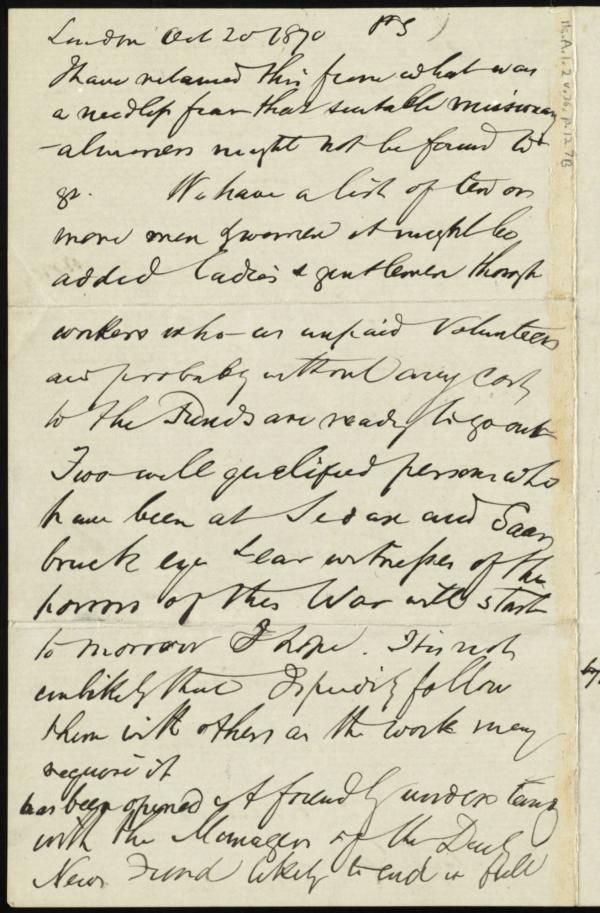 London Oct 20 1870 PS )
I have retained this from what was
a needless fear that suitable missionary
-almoners might not be found to
go. We have a list of ten or
more men & women it might be
added ladies & gentlemen though
workers who as unpaid Volunteers
and probably without any cost
to the Funds are ready to go out
Two well qualified persons who
have been at Sedan and Saar
bruck eye & ear witnesses of the
horrors of this War will start
to morrow I hope. It is not
unlikely that I speedily follow
them with others as the work may
require it
has been opened A friendly understang
with the Managers of the Daily
News Fund likely to end in full
M.A.1.2 v.36, p.127B